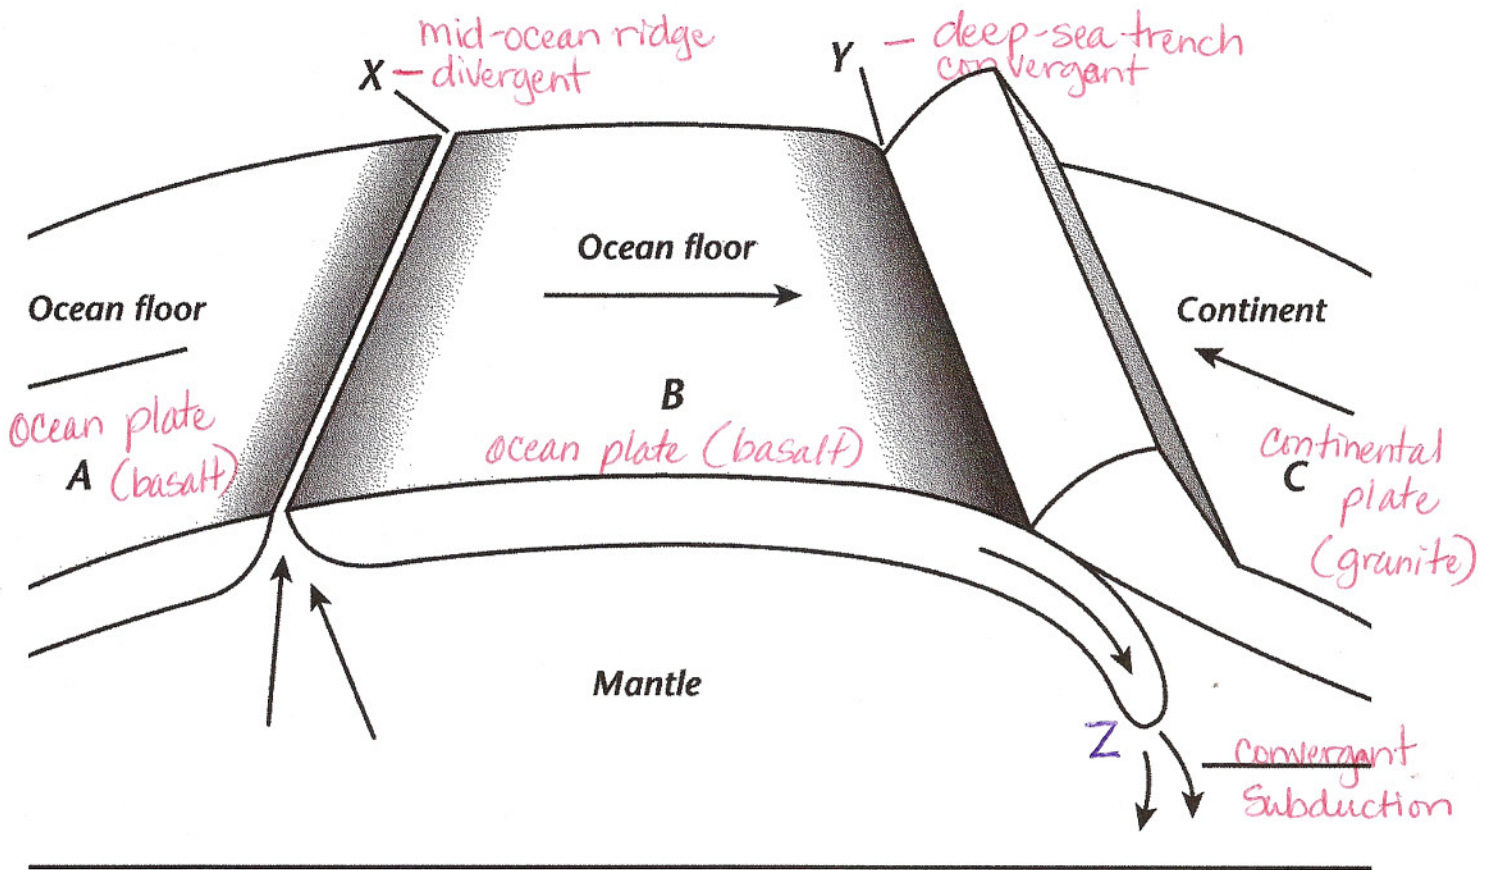 mid-ocean ridge
X – divergent
Y – deep-sea trench
convergant
Ocean floor
Ocean floor
Continent
ocean plate
A (basalt)
B
ocean plate (basalt)
continental
C plate
(granite)
Mantle
Z
convergant
Subduction